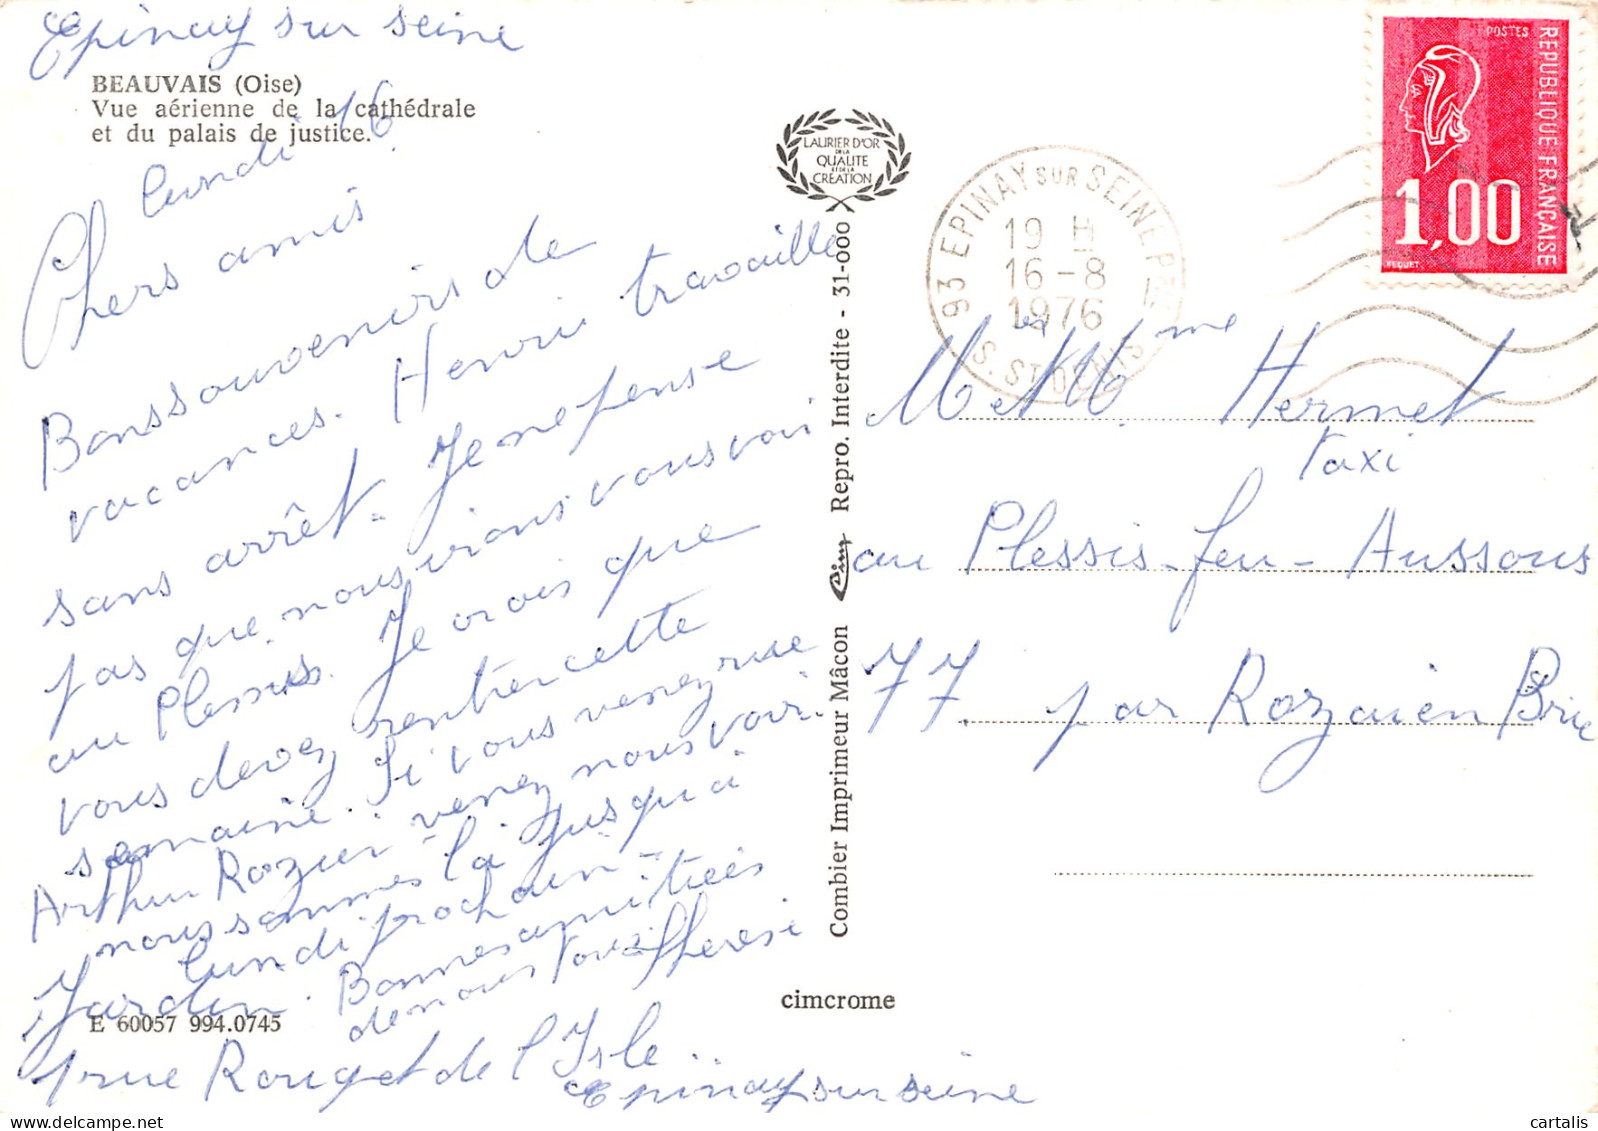 Epinay sur seine
BEAUVAIS (Oise)
Vue aérienne de la cathédrale
et du palais de justice.
lundi 16
Chers amis
Bons souvenirs de
vacances. Henri travaille
sans arrêt. Je ne pense
pas que nous irions vous voir
au Plessis. Je crois que
vous devez rentrer cette
semaine. Si vous venez rue
Arthur Rozier venez nous voir.
nous sommes là jusqu'à
lundi prochain -
Bonnes amitiées
de nous tous. Therese
Jardin.
1 rue Rouget de l'Isle..
Epinay sur seine
E 60057 994.0745
LAURIER D'OR
DE LA
QUALITE
ET DE LA
CRÉATION
Combier Imprimeur Mâcon Cim Repro. Interdite - 31-000
cimcrome
93 EPINAY SUR SEINE PAL
19 H
16-8
1976
S. ST DENIS
POSTES
REPUBLIQUE FRANÇAISE
1,00
BEQUET
Mr et Mme Hermet
taxi
au Plessis-feu-Aussous
77. par Rozaien Brie
cartalis